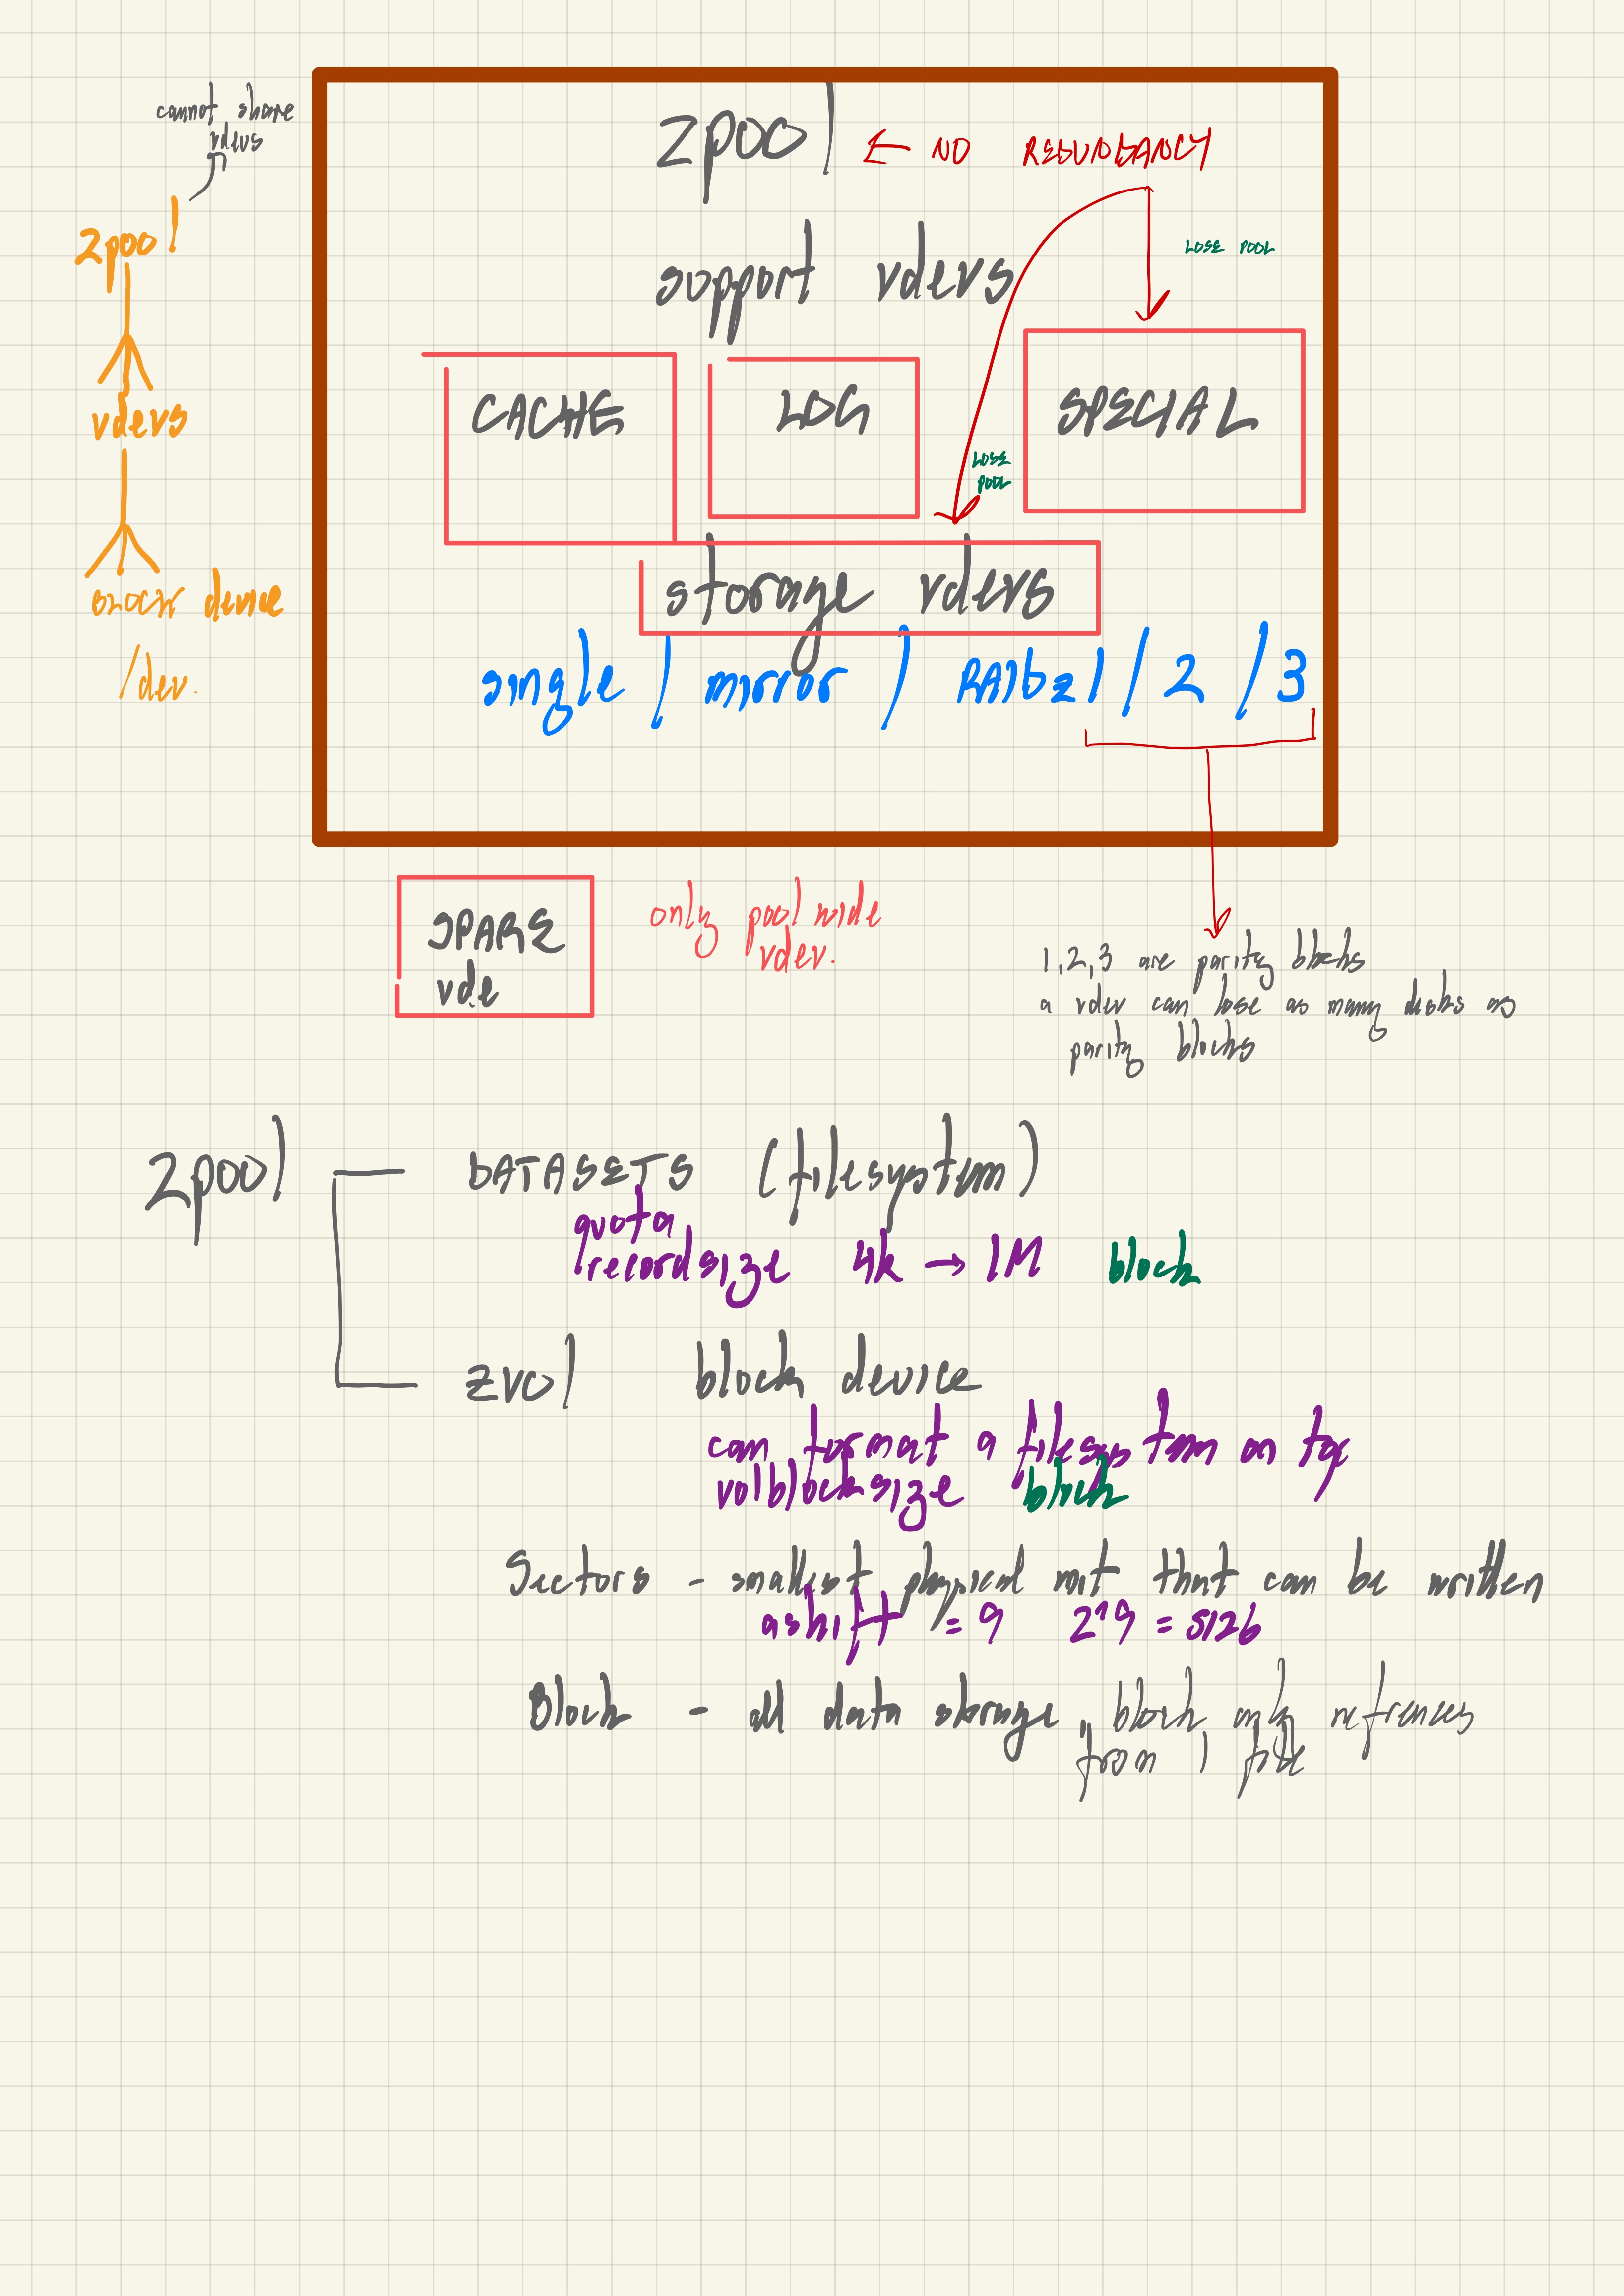 cannot share
vdevs
zpool ← NO REDUNDANCY
zpool
LOSE POOL
support vdevs
CACHE
LOG
SPECIAL
vdevs
LOSE
POOL
storage vdevs
BLOCK device
/dev.
single / mirror / RAIDz1 / 2 / 3
SPARE
vde
only pool wide
vdev.
1,2,3 are parity blocks
a vdev can lose as many disks as
parity blocks
zpool
DATASETS (filesystem)
quota
recordsize 4k → 1M block
zvol block device
can format a filesystem on top
volblocksize block
Sectors - smallest physical unit that can be written
ashift = 9 2^9 = 512b
Block - all data storage, block only refrences
from 1 file